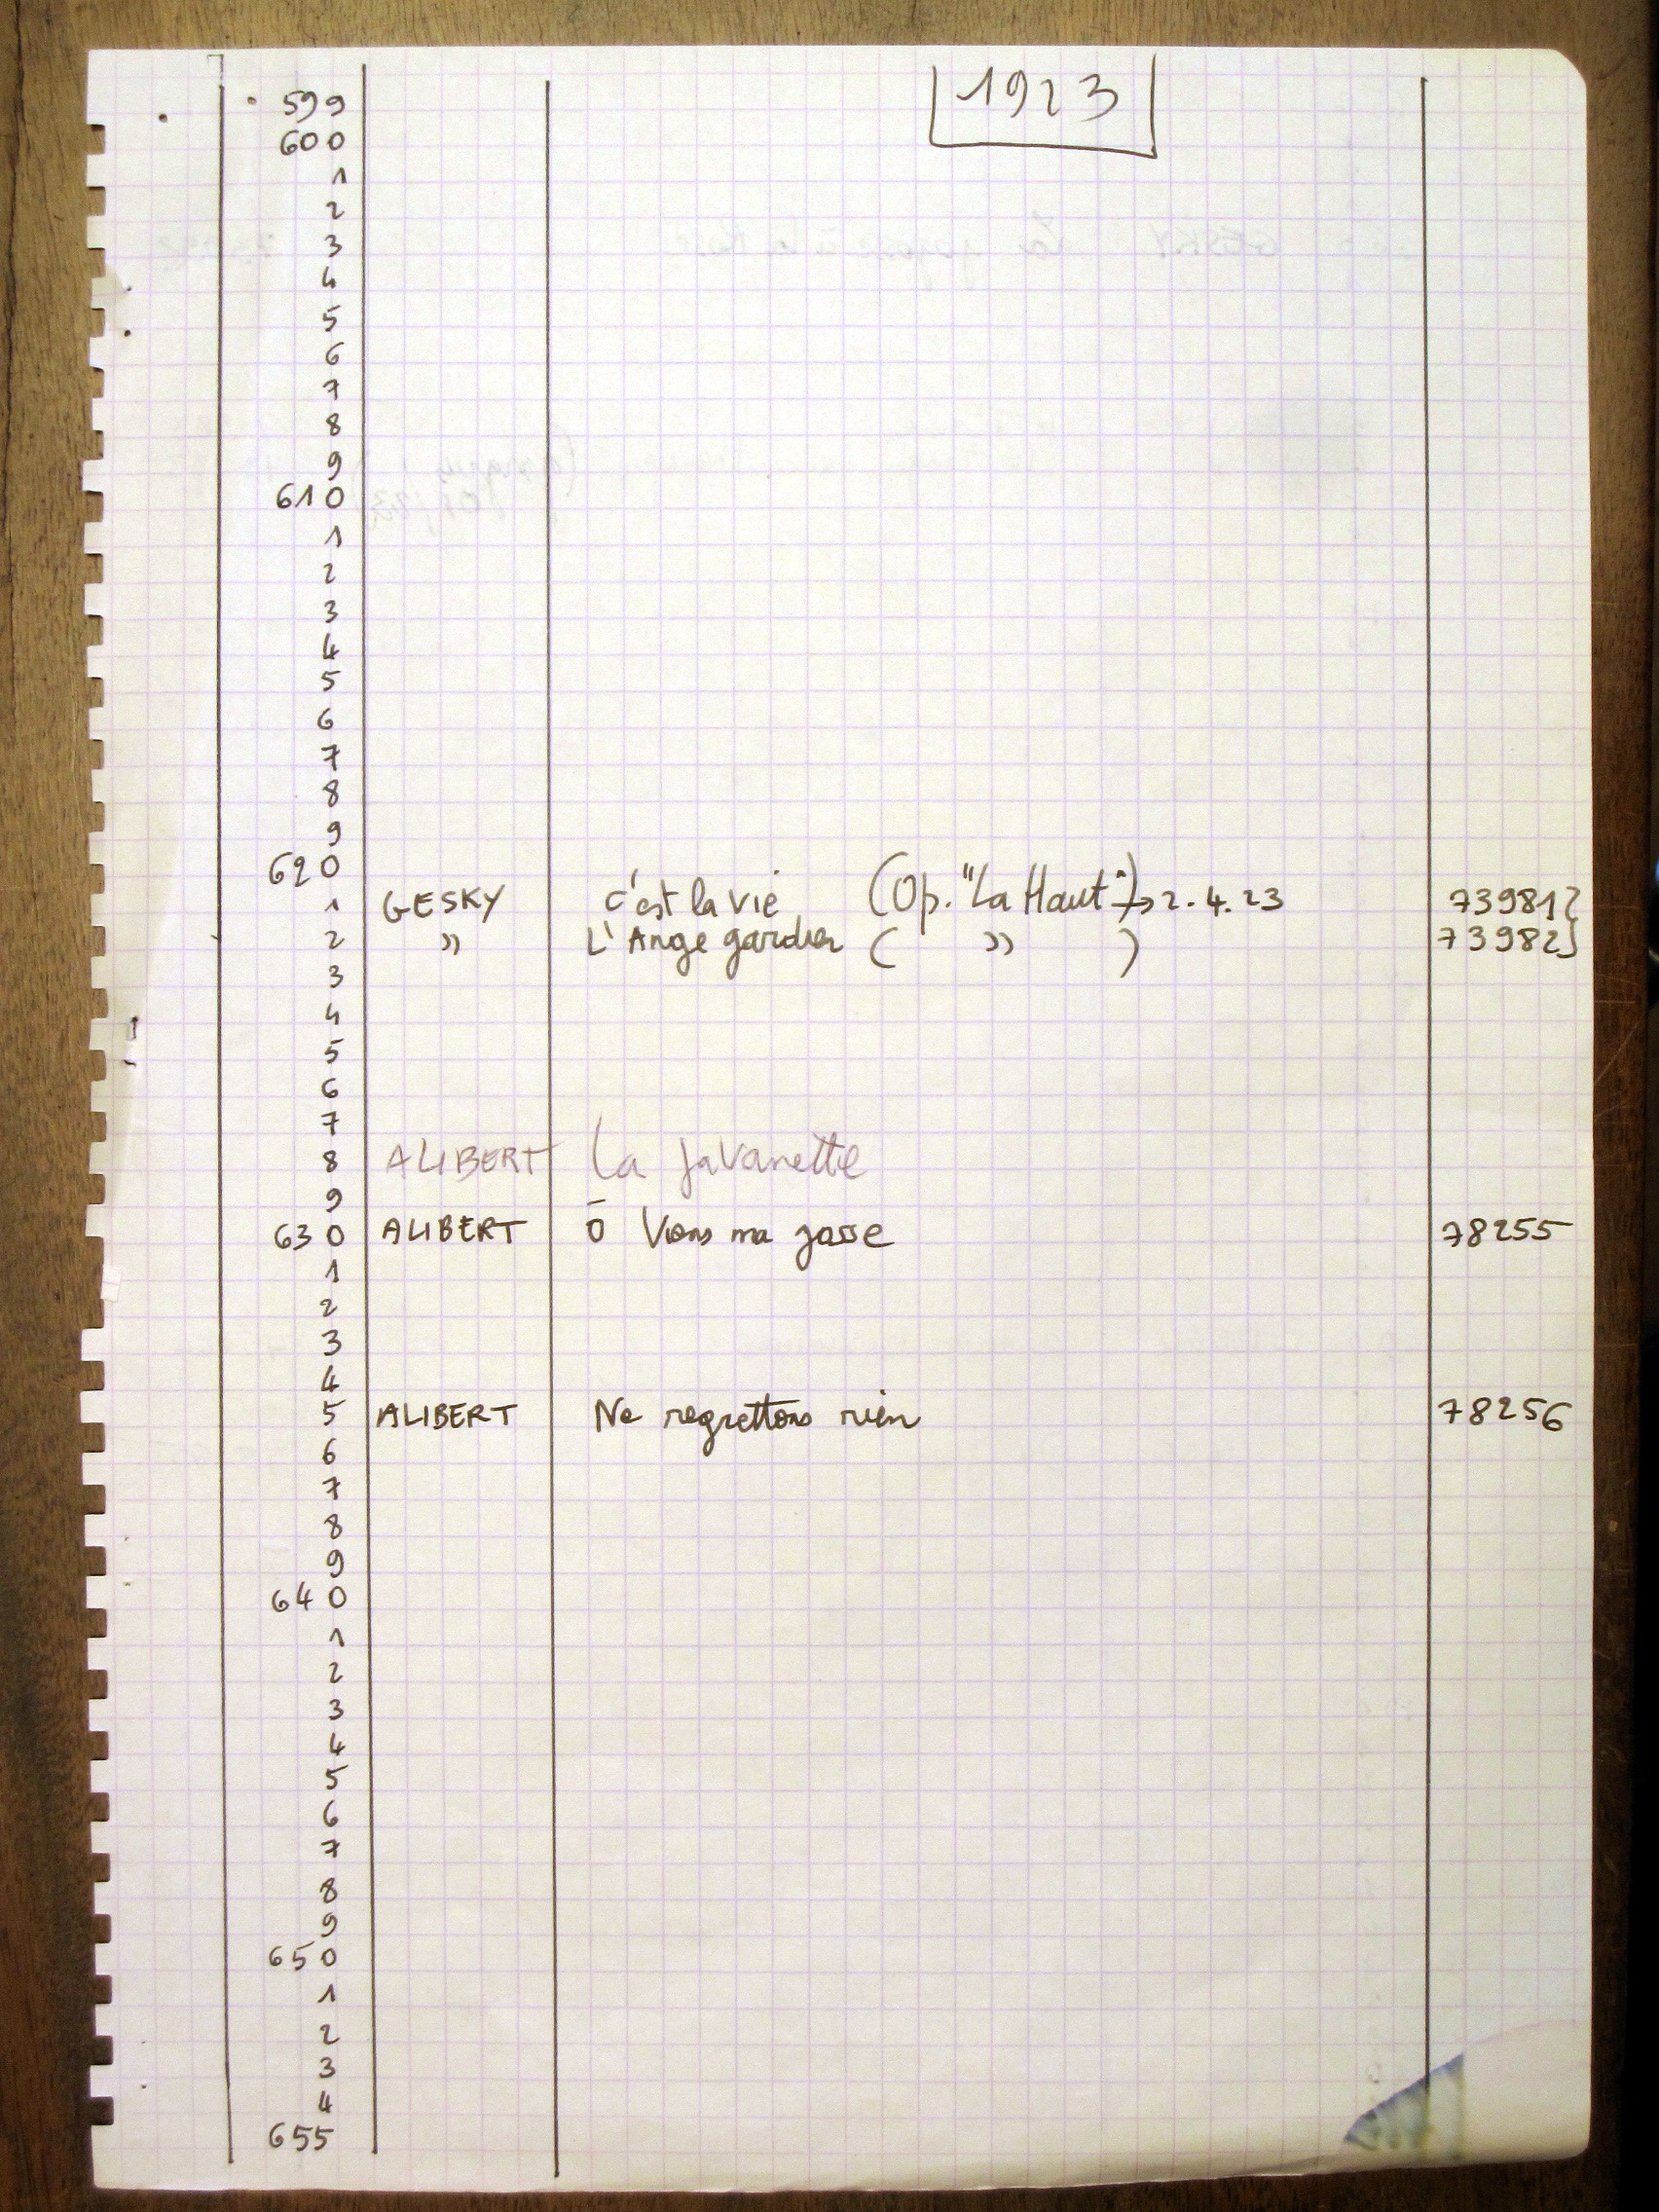 1923
599
600
1
2
3
4
5
6
7
8
9
610
1
2
3
4
5
6
7
8
9
620
1 GESKY C'est la vie (Op. "La Haut") → 2.4.23 73981}
2 » L'Ange gardien ( » ) 73982}
3
4
5
6
7
8 ALIBERT La Javanette
9
630 ALIBERT Ô Viens ma gosse 78255
1
2
3
4
5 ALIBERT Ne regrettons rien 78256
6
7
8
9
640
1
2
3
4
5
6
7
8
9
650
1
2
3
4
655